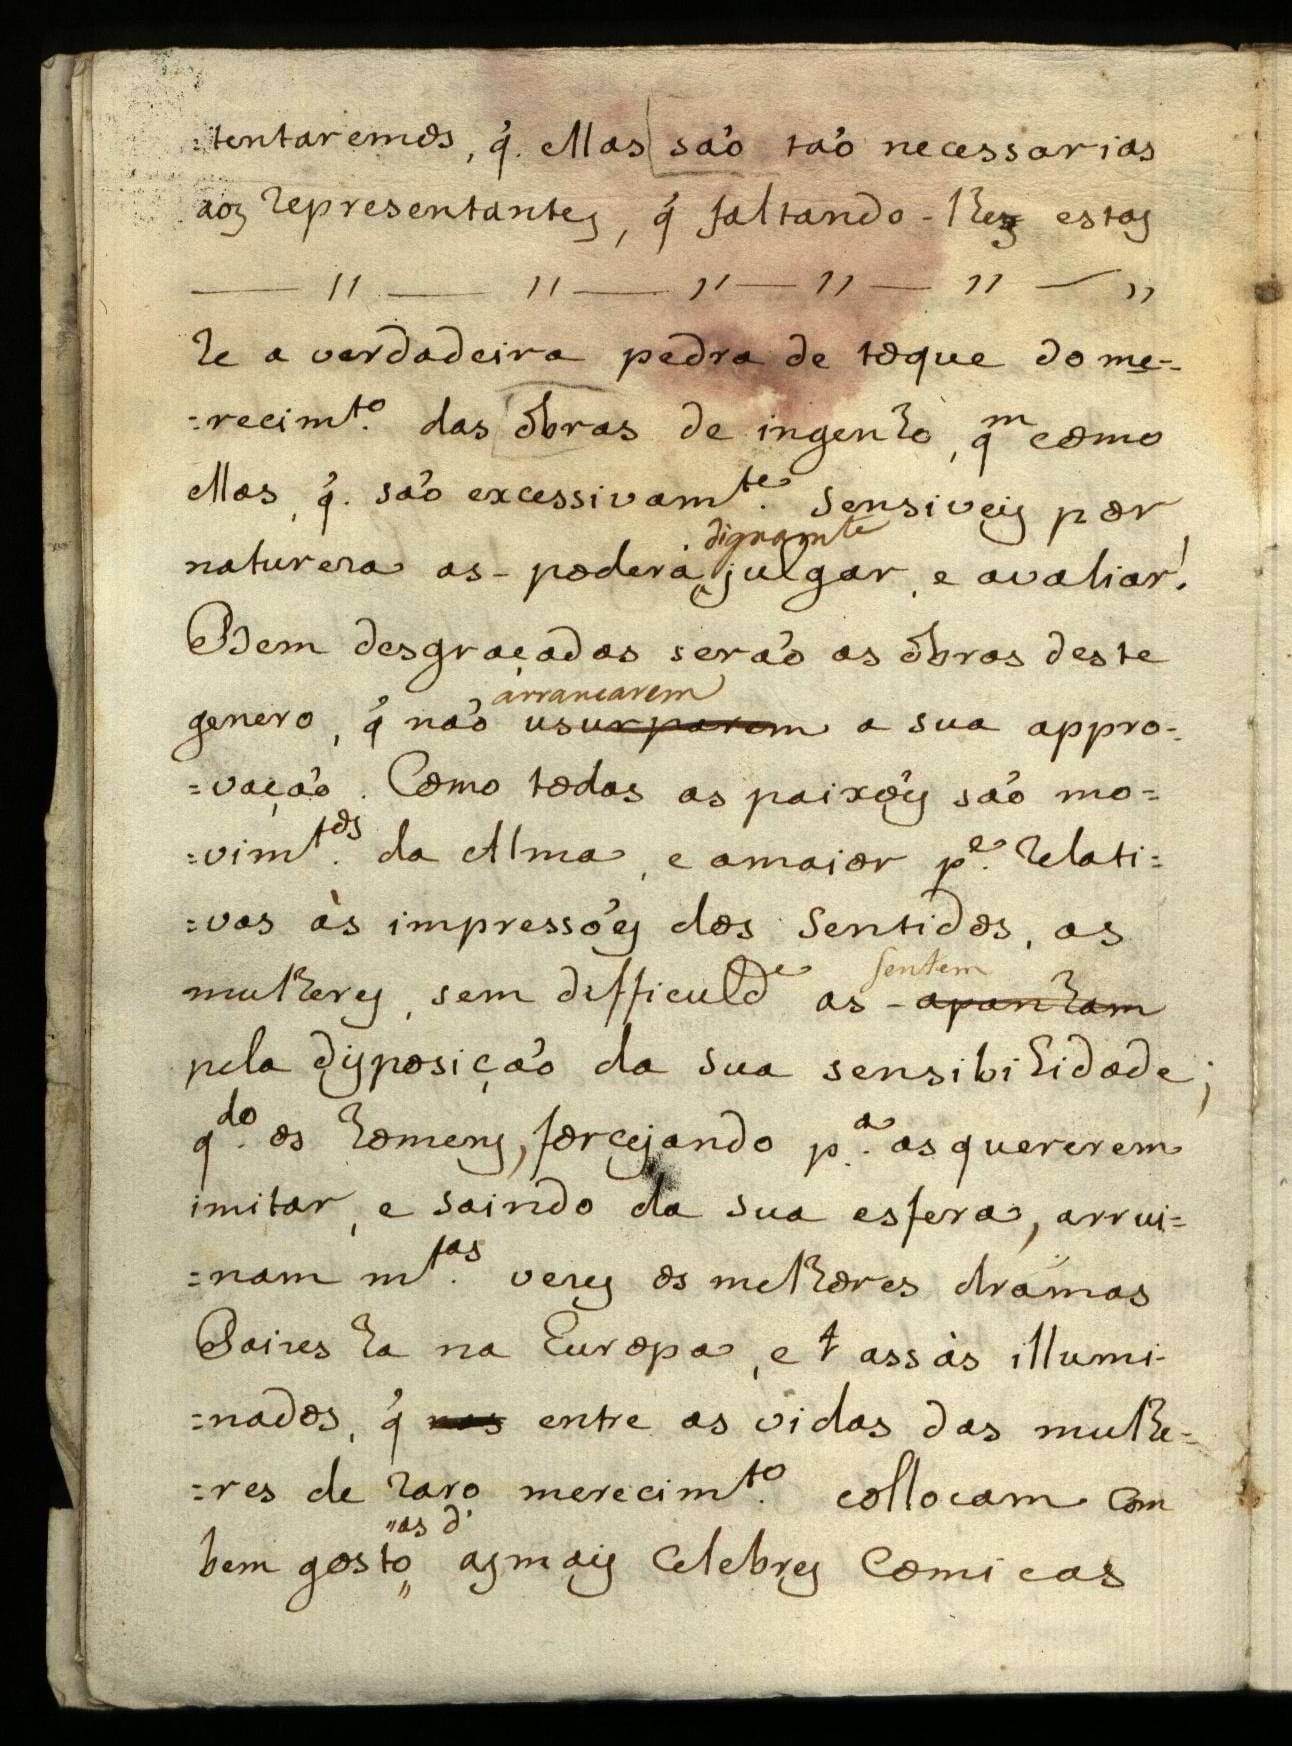 =tentaremos, q̃. ellas são tão necessarias
aos representantes, q̃ faltando-lhes estas
— " — " — " — " — " — "
he a verdadeira pedra de toque do me-
=recimto. das óbras de ingenho, qm como
ellas, q̃. são excessivamte. sensiveis por
dignamte
natureza as-poderá julgar, e avaliar!
Bem desgraçadas serão as óbras deste
arrancarem
genero, q̃ não usurparem a sua appro-
=vação. Como todas as paixões são mo=
=vimtos. da Alma, e a maior pe. relati=
=vas às impressões dos Sentidos, as
sentem
mulheres, sem difficulde as-apanham
pela disposição da sua sensibilidade;
qdo. os homens, forcejando pa. as quererem
imitar, e saindo da sua esfera, arrui=
=nam mtas. vezes os melhores dramas
Paizes ha na Europa, e t assàs illumi-
=nados, q̃ nas entre as vidas das mulhe-
=res de raro merecimto. collocam com
"as d'
bem gosto" as mais Celebres Comicas